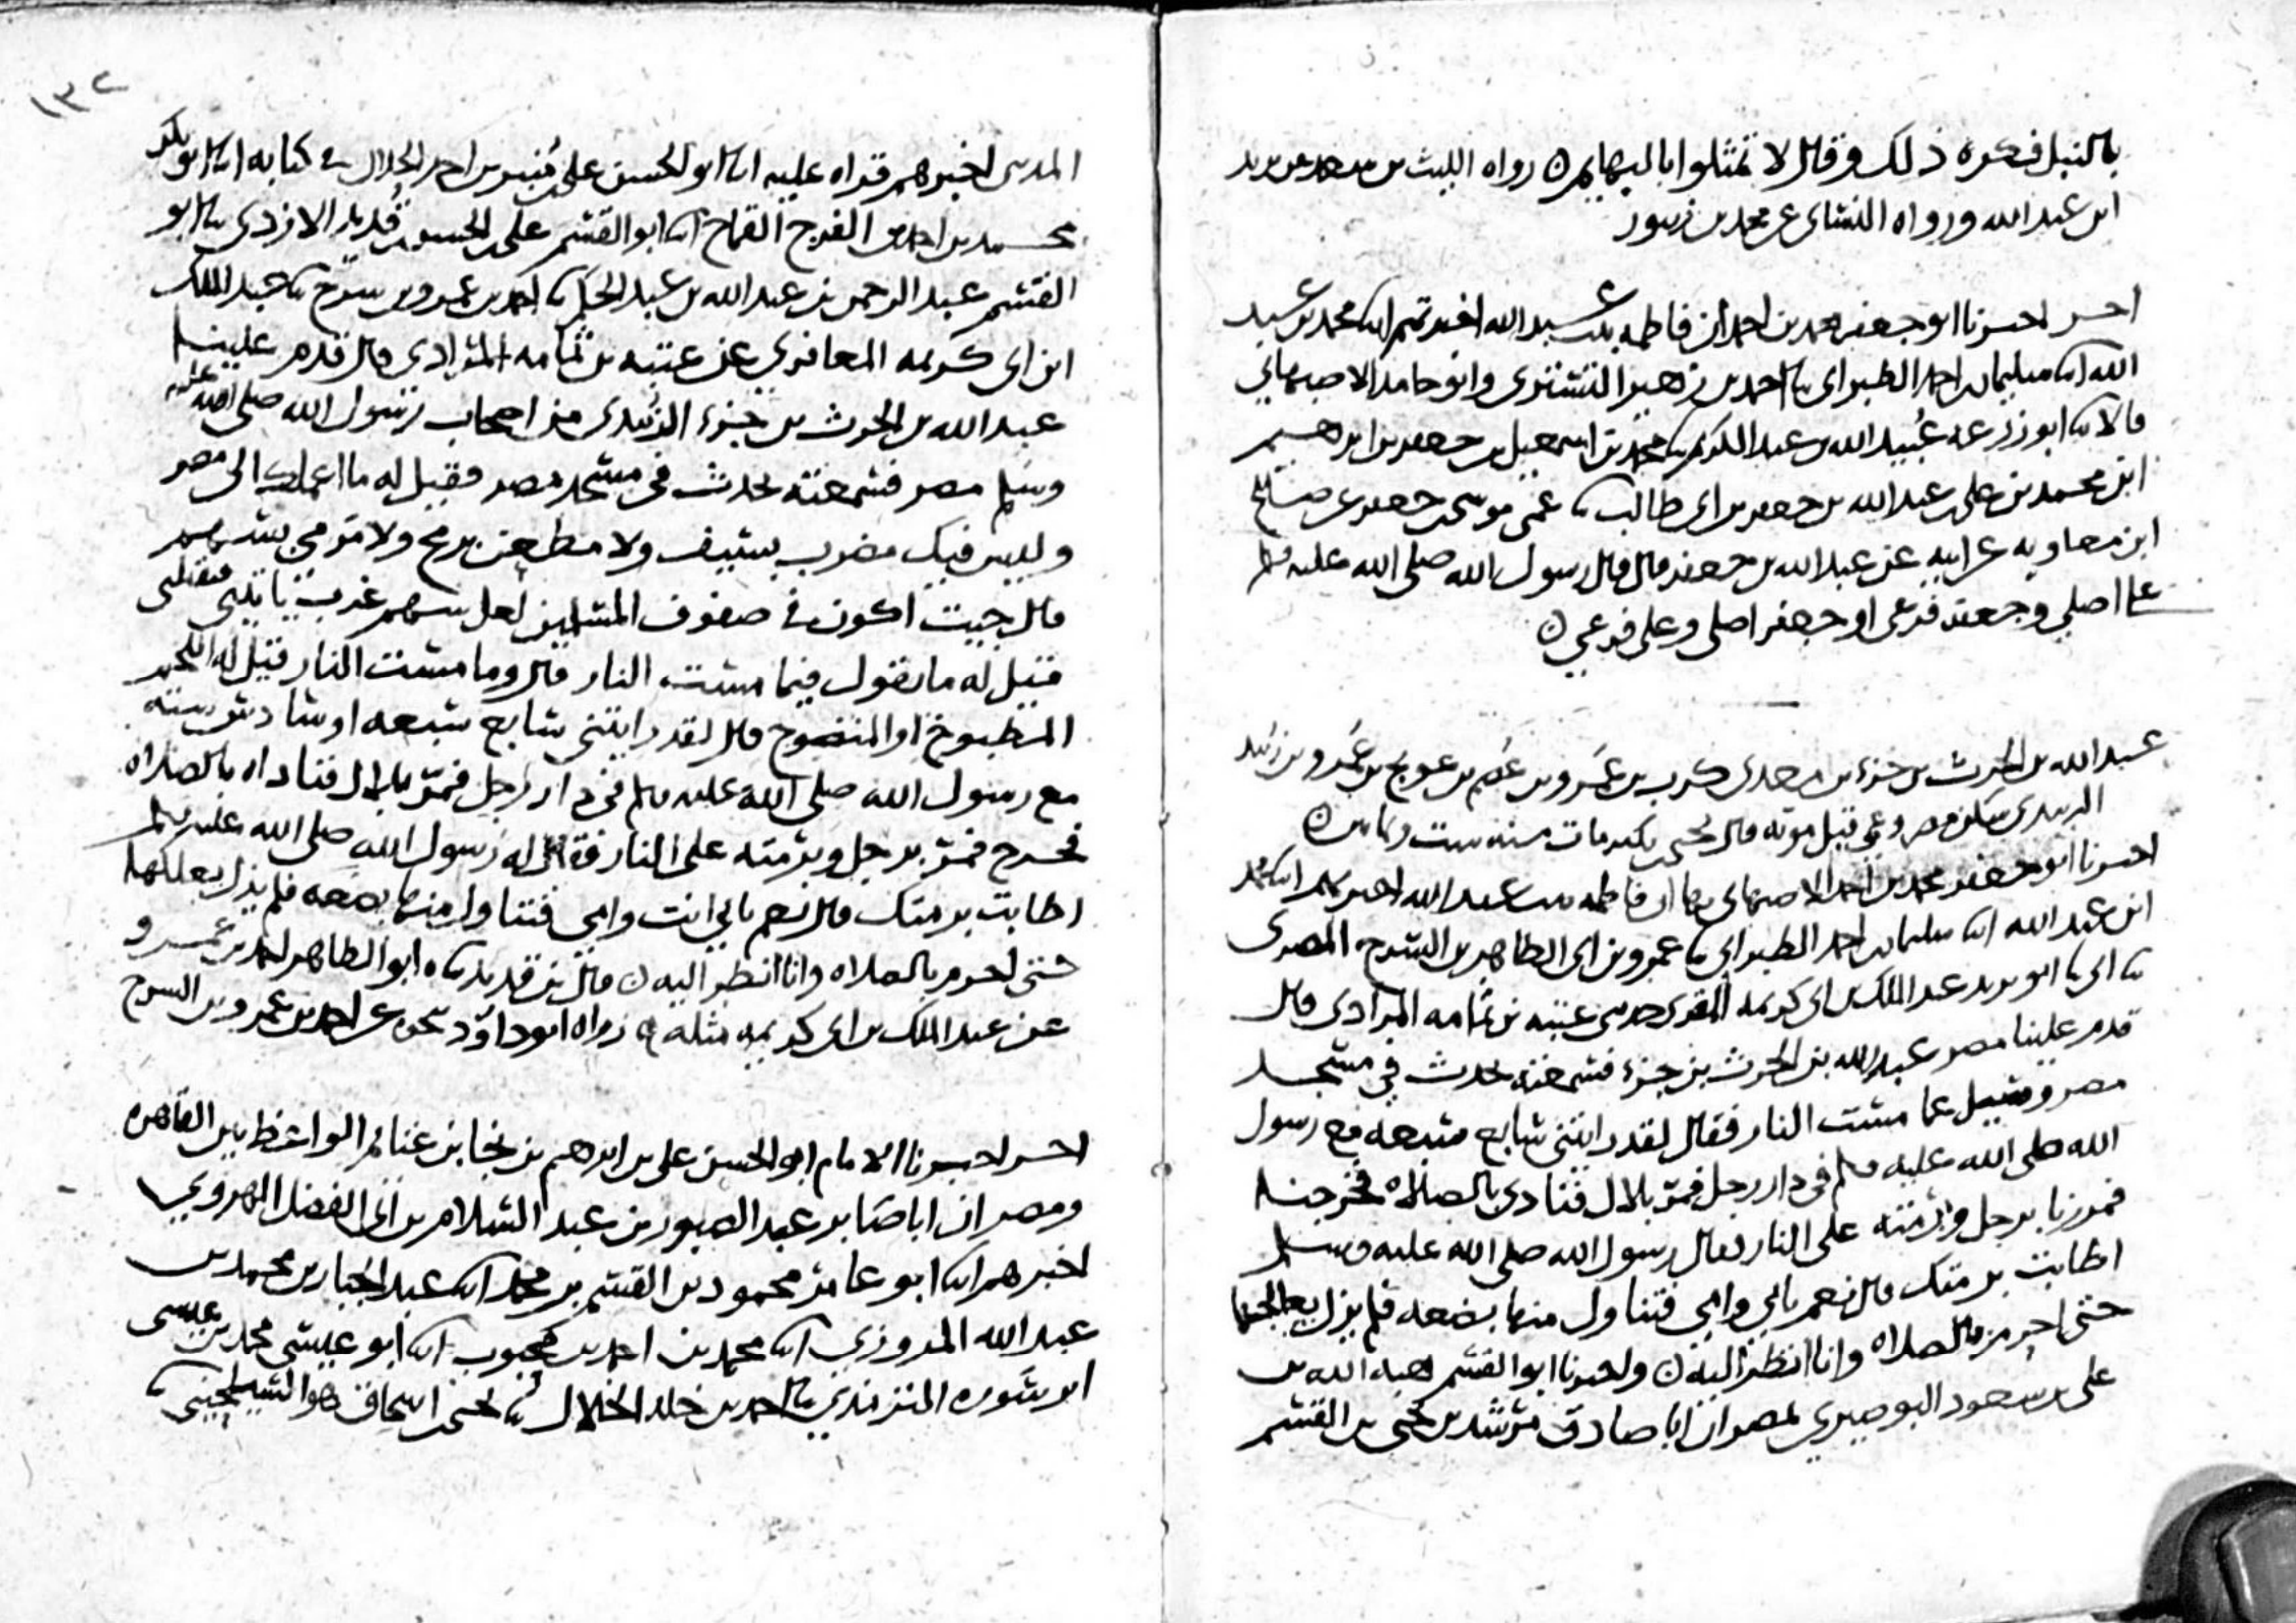 بالنبل فكره ذلك وقال لا تمثلوا بالبهايم رواه الليث بن سعد عن يزيد
ابن عبد الله ورواه النساي عن محمد بن زنبور
اخر اخبرنا ابو جعفر محمد بن احمد ان فاطمه بنت عبد الله اخبرتهم ابنا محمد بن عبد
الله ابنا سليمان بن احمد الطبراني ثنا احمد بن زهير التستري وابو حامد الاصبهاني
قالا ثنا ابو زرعه عبيد الله بن عبد الكريم ثنا محمد بن اسمعيل بن جعفر بن ابرهيم
ابن محمد بن علي بن عبد الله بن جعفر بن ابي طالب ثنا عمي موسى بن جعفر عن صالح
ابن معاويه عن ابيه عن عبد الله بن جعفر قال قال رسول الله صلى الله عليه وسلم
علي اصلي وجعفر فرعي او جعفر اصلي وعلي فرعي
عبد الله بن الحرث بن جزء بن معدي كرب بن عمرو بن عصم بن عويج بن عمرو بن زبيد
الزبيدي سكن مصر وعمي قبل موته قال يحيى بن بكير مات سنه ست وثمانين
اخبرنا ابو جعفر محمد بن احمد الاصبهاني بها ان فاطمه بنت عبد الله اخبرتهم ابنا محمد
ابن عبد الله ابنا سليمان بن احمد الطبراني ثنا عمرو بن ابي الطاهر بن السرح المصري
ثنا ابي ثنا ابو يزيد عبد الملك بن ابي كريمه المقري حدثني عتبه بن ثمامه المرادي قال
قدم علينا مصر عبد الله بن الحرث بن جزء فسمعته يحدث في مسجد
مصر وسيل عما مست النار فقال لقد رايتني سابع سبعه مع رسول
الله صلى الله عليه وسلم في دار رجل فمر بلال فنادى بالصلاه فخرجنا
فمررنا برجل وبرمته على النار فقال رسول الله صلى الله عليه وسلم
اطابت برمتك قال نعم بابي وامي فتناول منها بضعه فلم يزل يعالجها
حتى احرم بالصلاه وانا انظر اليه واخبرنا ابو القسم هبه الله بن
علي بن مسعود البوصيري بمصر ان ابا صادق مرشد بن يحيى بن القسم
١٣٢
المديني اخبرهم قراه عليه ابنا ابو الحسن علي بن منير بن احمد الخلال في كتابه ابنا ابو بكر
محمد بن احمد بن الفرج القماح ابنا ابو القسم علي بن الحسن بن قديد الازدي ثنا ابو
القسم عبد الرحمن بن عبد الله بن عبد الحكم ثنا احمد بن عمرو بن سرح ثنا عبد الملك
ابن ابي كريمه المعافري عن عتبه بن ثمامه المرادي قال قدم علينا
عبد الله بن الحرث بن جزء الزبيدي من اصحاب رسول الله صلى الله عليه
وسلم مصر فسمعته يحدث في مسجد مصر فقيل له ما اعملك الى مصر
وليس فيك مضرب بسيف ولا مطعن برمح ولا مرمى بسهم
قال جيت اكون في صفوف المسلمين لعل سهم غرب ياتيني فيقتلني
فقيل له ما تقول فيما مست النار قال وما مست النار فقيل له اللحم
المطبوخ او المنضوج قال لقد رايتني سابع سبعه او سادس سته
مع رسول الله صلى الله عليه وسلم في دار رجل فمر بلال فناداه بالصلاه
فخرج فمر برجل وبرمته على النار فقال له رسول الله صلى الله عليه وسلم
اطابت برمتك قال نعم بابي انت وامي فتناول منها بضعه فلم يزل يعلكها
حتى احرم بالصلاه وانا انظر اليه قال بن قديد ثناه ابو الطاهر احمد بن عمرو
عن عبد الملك بن ابي كريمه مثله رواه ابو داود نحوه عن احمد بن عمرو بن السرح
اخر اخبرنا الامام ابو الحسن علي بن ابرهيم بن نجا بن غنايم الواعظ بين القاهره
ومصر ان ابا صابر عبد الصبور بن عبد السلام بن ابي الفضل الهروي
اخبرهم ابنا ابو عامر محمود بن القسم بن محمد ابنا عبد الجبار بن محمد بن
عبد الله المروزي ابنا محمد بن احمد بن محبوب ابنا ابو عيسى محمد بن عيسى
ابن سوره الترمذي ثنا احمد بن خلد الخلال ثنا يحيى بن اسحاق هو السيلحيني ثنا